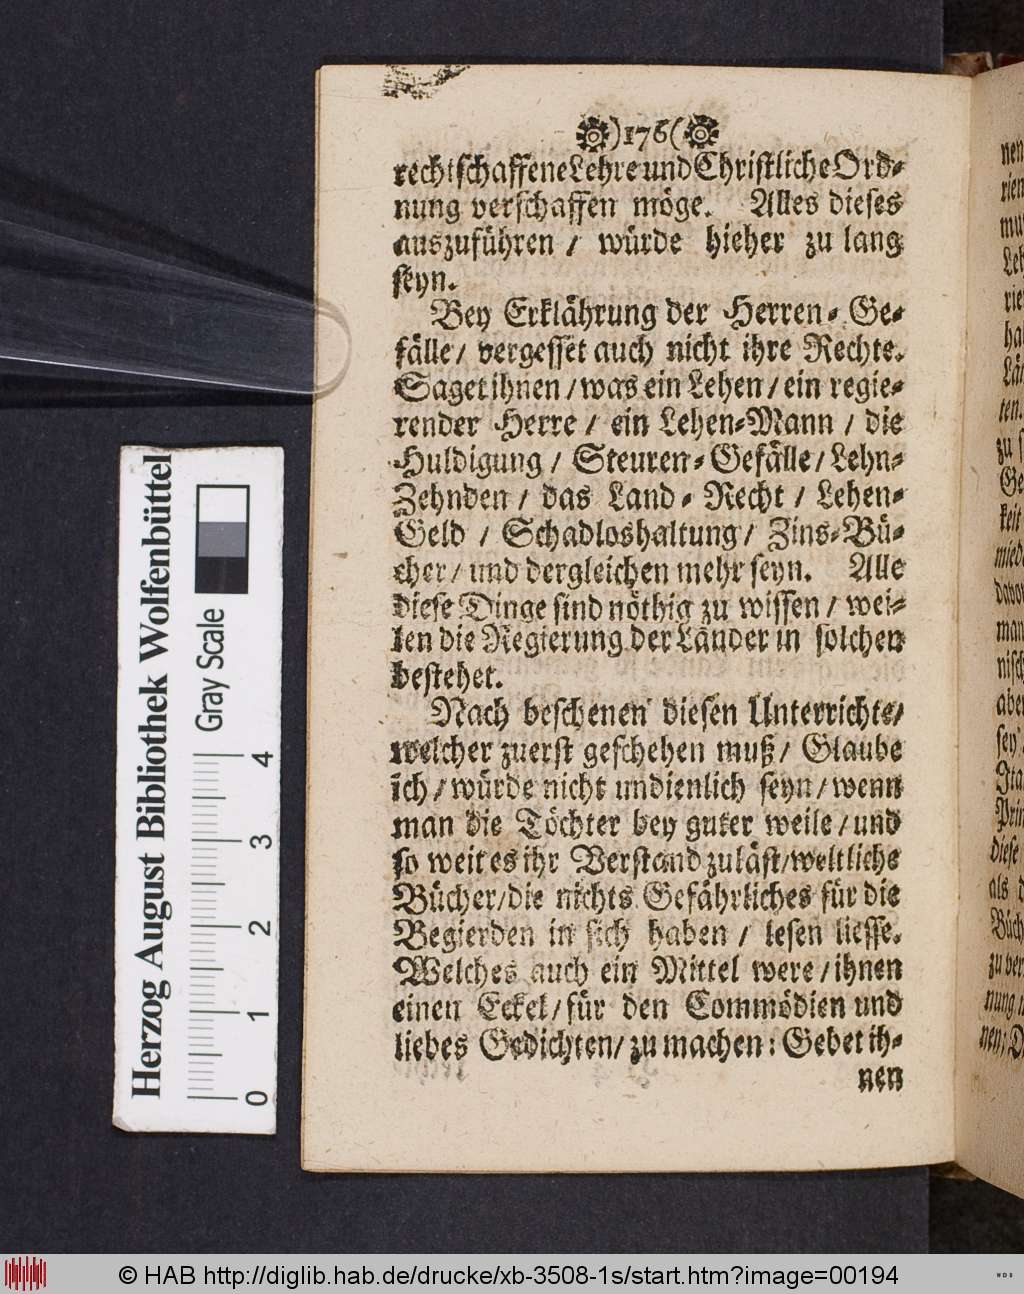 )176(
rechtschaffene Lehre und Christliche Ord-
nung verschaffen möge. Alles dieses
auszuführen / würde hieher zu lang
seyn.
Bey Erklährung der Herren-Ge-
fälle / vergesset auch nicht ihre Rechte.
Saget ihnen / was ein Lehen / ein regie-
render Herre / ein Lehen-Mann / die
Huldigung / Steuren-Gefälle / Lehn-
Zehnden / das Land-Recht / Lehen-
Geld / Schadloshaltung / Zins-Bü-
cher / und dergleichen mehr seyn. Alle
diese Dinge sind nöthig zu wissen / wei-
len die Regierung der Länder in solchen
bestehet.
Nach beschenen diesen Unterrichte /
welcher zuerst geschehen muß / Glaube
ich / würde nicht undienlich seyn / wenn
man die Töchter bey guter weile / und
so weit es ihr Verstand zuläst / weltliche
Bücher / die nichts Gefährliches für die
Begierden in sich haben / lesen liesse.
Welches auch ein Mittel were / ihnen
einen Eckel / für den Commödien und
liebes Gedichten / zu machen: Gebet ih-
nen
Herzog August Bibliothek Wolfenbüttel
Gray Scale
0 1 2 3 4
© HAB http://diglib.hab.de/drucke/xb-3508-1s/start.htm?image=00194